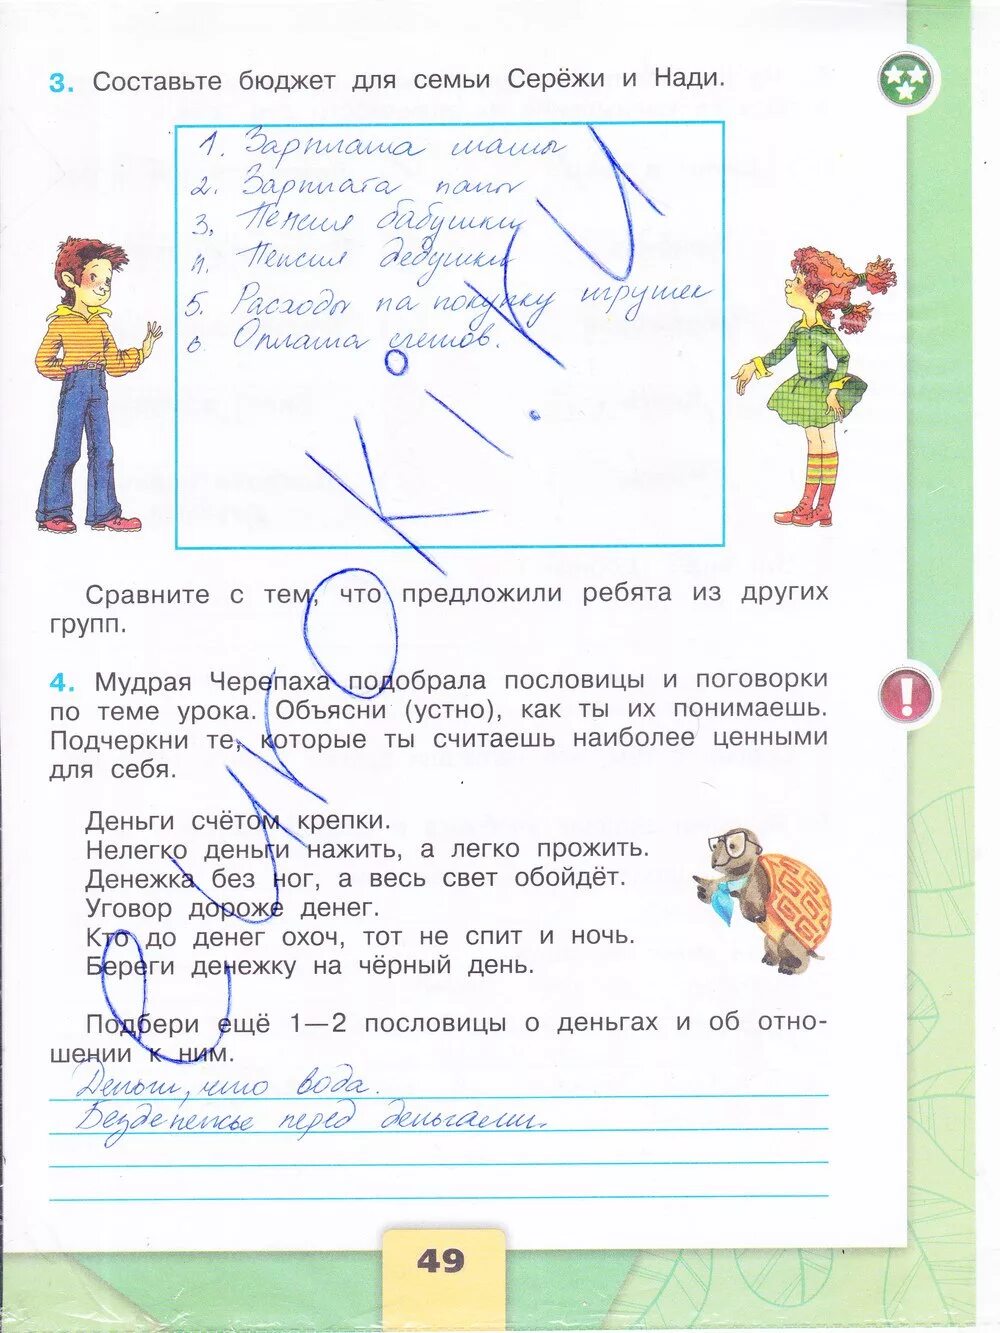 3. Составьте бюджет для семьи Серёжи и Нади.
1. Зарплата мамы
2. Зарплата папы
3. Пенсия бабушки
4. Пенсия дедушки
5. Расходы на покупку игрушек
6. Оплата счетов.
Сравните с тем, что предложили ребята из других
групп.
4. Мудрая Черепаха подобрала пословицы и поговорки
по теме урока. Объясни (устно), как ты их понимаешь.
Подчеркни те, которые ты считаешь наиболее ценными
для себя.
Деньги счётом крепки.
Нелегко деньги нажить, а легко прожить.
Денежка без ног, а весь свет обойдёт.
Уговор дороже денег.
Кто до денег охоч, тот не спит и ночь.
Береги денежку на чёрный день.
Подбери ещё 1—2 пословицы о деньгах и об отно-
шении к ним.
Деньги, что вода.
Безденежье перед деньгами.
49
!